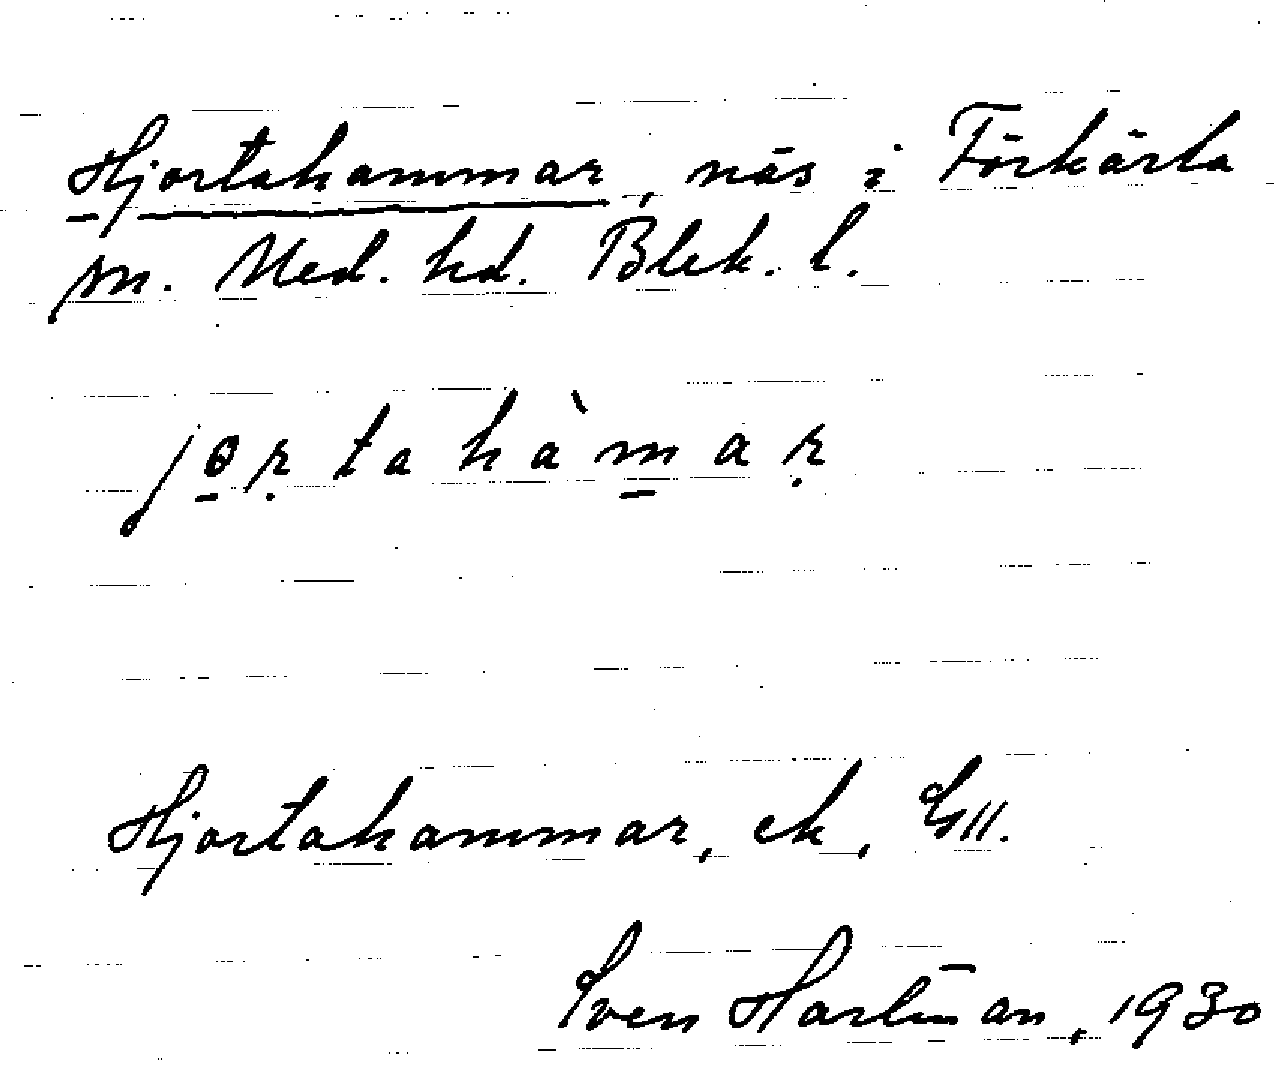 Hjortahammar, näs i Förkärla
sn. Med. hd. Blek. l.
jɵṛtahàmaṛ
Hjortahammar, ek,
Sven Hartman, 1930